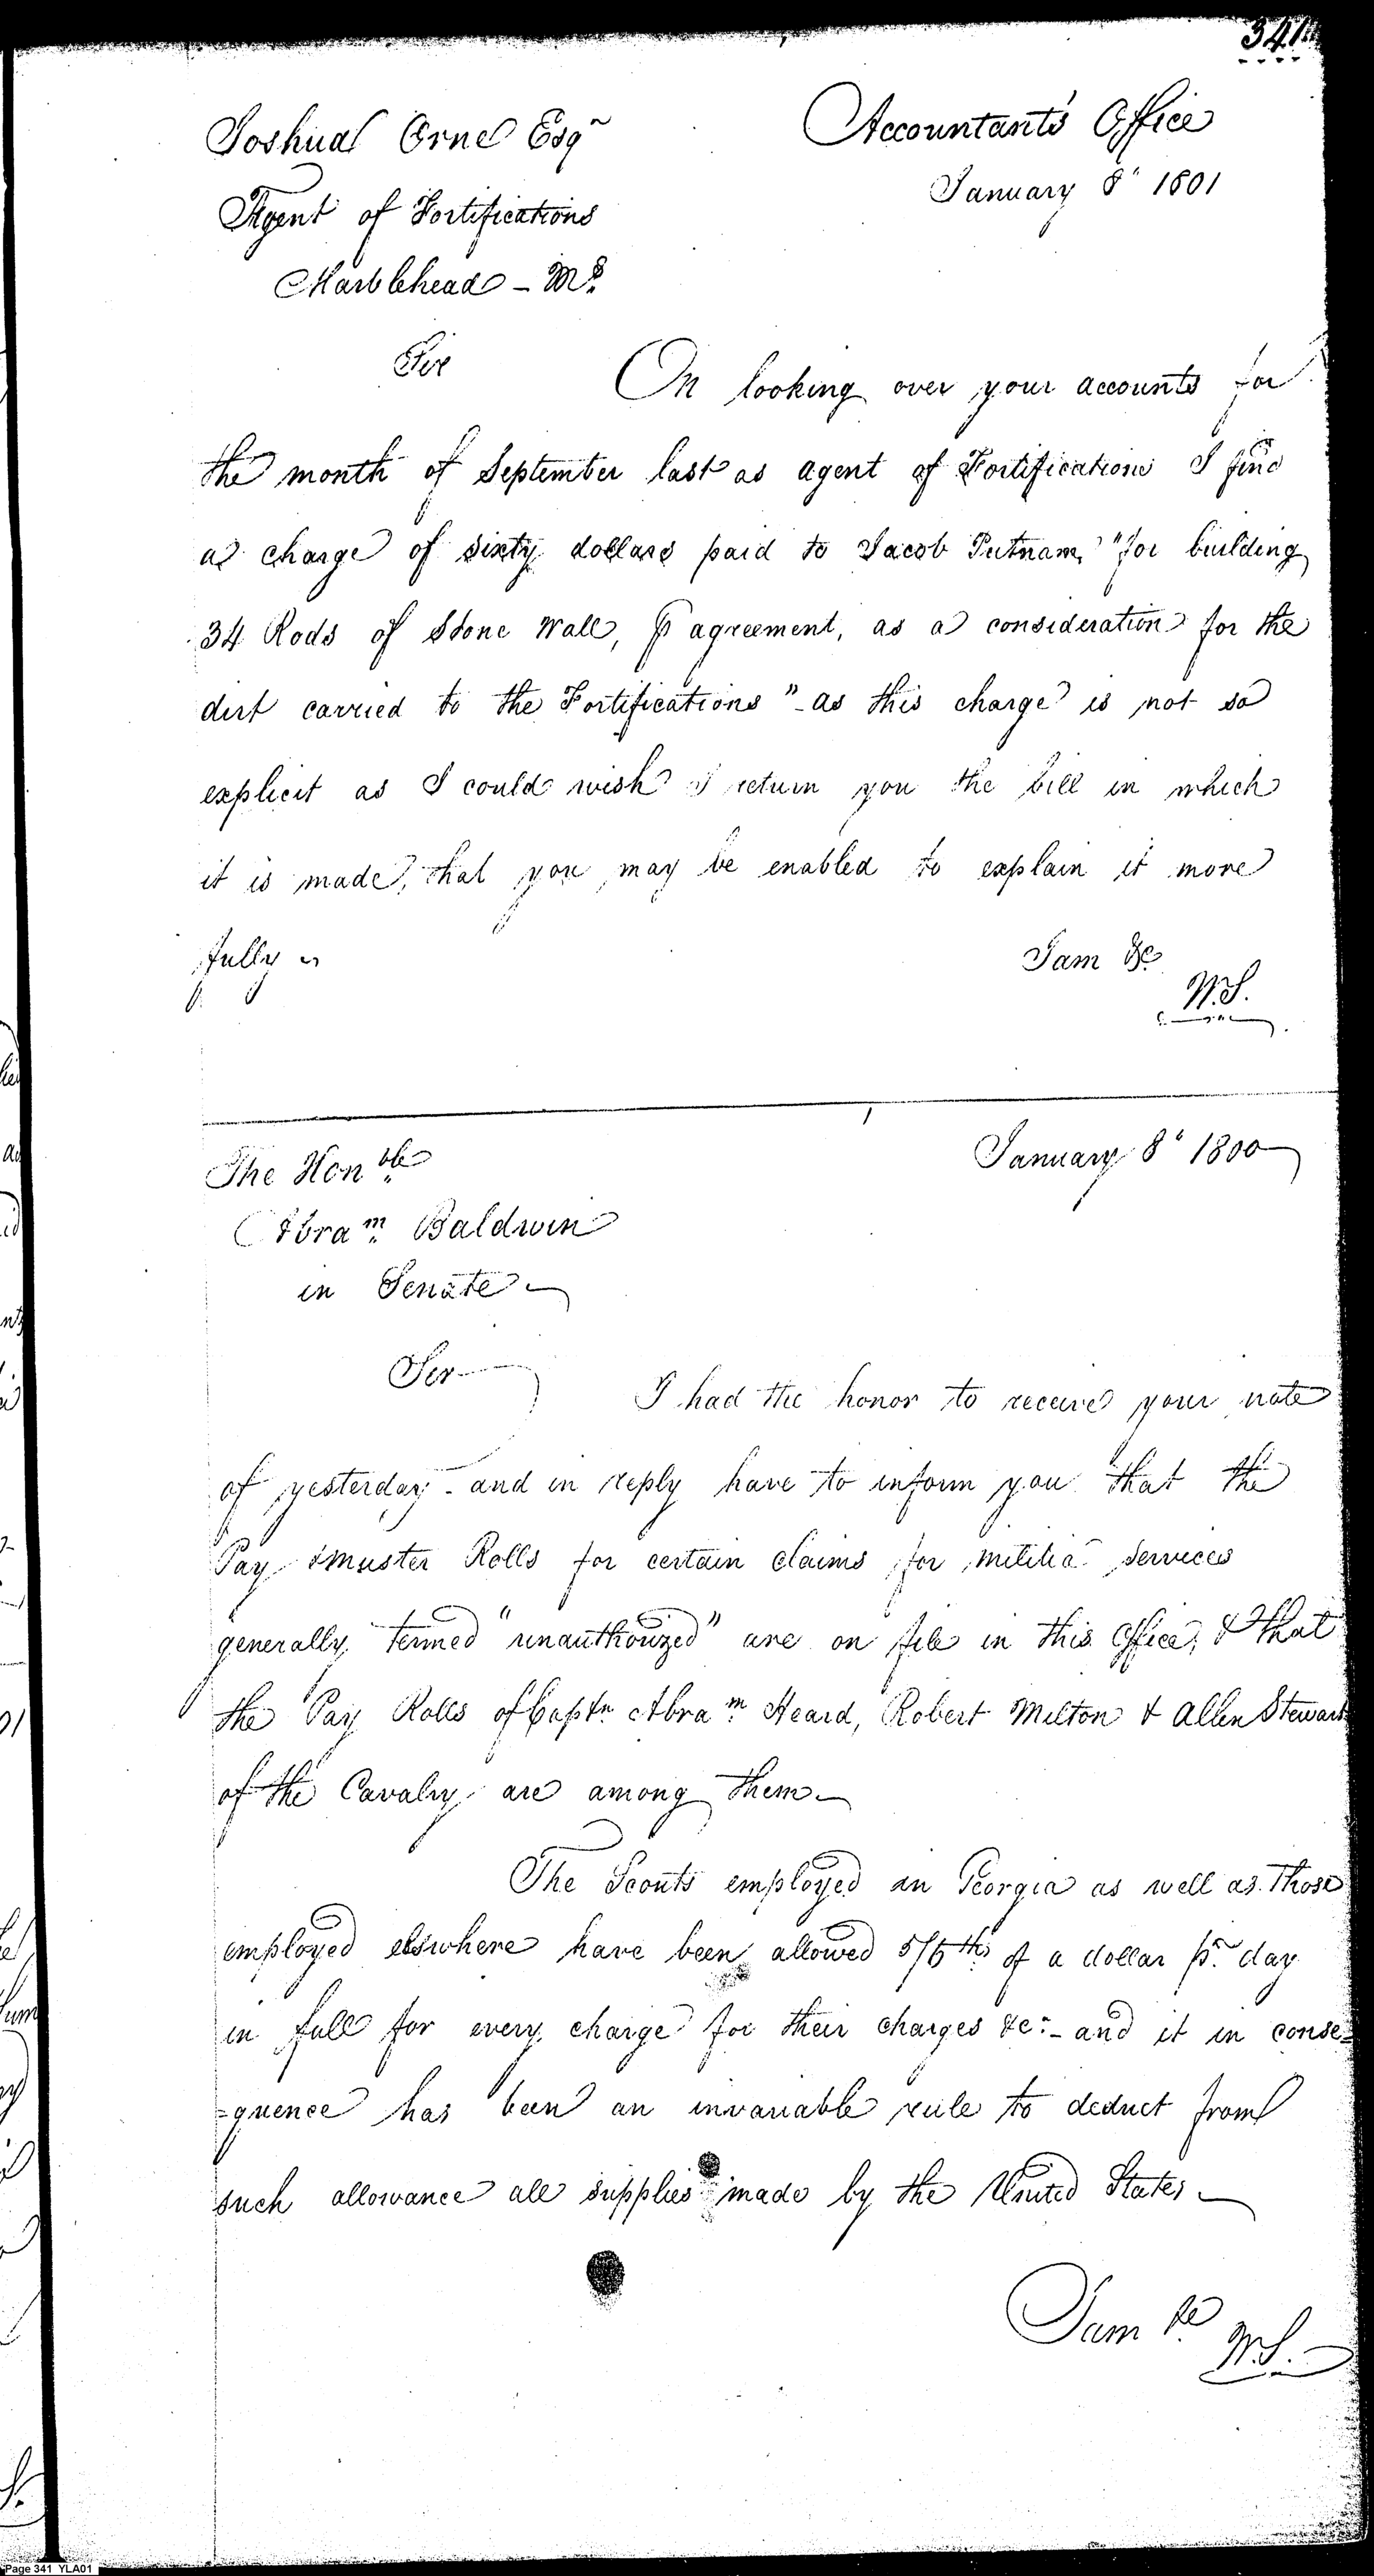 341
Joshua Orne Esqr
Accountant's Office
January 8th 1801
Agent of Fortifications
Marblehead - Ms.
Sir
On looking over your accounts for
the month of September last as agent of Fortifications I find
a charge of sixty dollars paid to Jacob Putnam, "for building
34 Rods of Stone Wall, p agreement, as a consideration for the
dirt carried to the Fortifications" - as this charge is not so
explicit as I could wish I return you the bill in which
it is made, that you may be enabled to explain it more
fully
I am &c
W.S.
January 8th 1800
The Honble
Abram Baldwin
in Senate
Sir
I had the honor to receive your note
of yesterday - and in reply have to inform you that the
Pay & muster Rolls for certain claims for militia services
generally termed "unauthorized" are on file in this Office, & that
the Pay Rolls of Captn Abram Heard, Robert Melton & Allen Stewart
of the Cavalry are among them
The Scouts employed in Georgia as well as those
employed elswhere have been allowed 5/6ths of a dollar pr. day
in full for every charge for their charges &c. - and it in conse=
=quence has been an invariable rule to deduct from
such allowance all supplies made by the United States
I am &c
W.S.
Page 341 YLA01